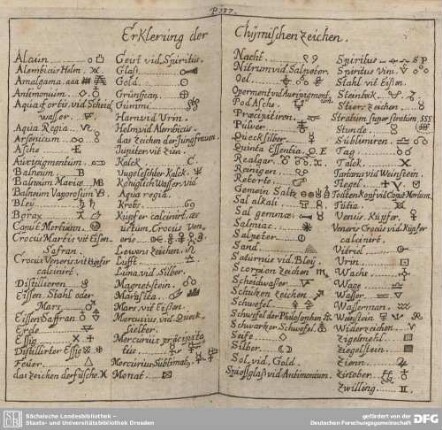 P 377.
Erklerung der
Chÿmischen zeichen.
Alaun
Alembicus Helm
Amalgama
Antimonium
Aqua fortis vid. Scheid
wasser
Aqua Regia
Arsenicum
Asche
Auripigmentum
Balneum
Balneum Mariæ
Balneum Vaporosum
Bleÿ
Borax
Caput Mortuum
Crocus Martis vit Eisen
Safran
Crocus Veneris vit Kupfer
calcinirt
Distillieren
Eissen Stahl oder
Mars
Eissen Saffran
Erde
Essig
Distillirter Essig
Feüer
das zeichen der fische
Geist vid. Spiritus
Glaß
Gold
Grünspan
Gummi
Harn vid Urin
Helm vid Alembicus
das Zeichen der Jungfrauen
Jupiter vid Zin
Kalck
Vngelöschter Kalck
Königlich Wasser vid
Aqua regia
Krebs
Kupfer calcinirt, æs
ustum, Crocus Ven
eris
Lewen Zeichen
Lufft
Luna vid Silber
Magnetstein
Marcasita
Mars vit Eissen
Mercurius vid. Queck
silber
Mercurius præcipita
tus
Mercurius Sublimat
Monat
Nacht
Nitrum vid. Salpeter
Oel
Operment vid Auripigment
Pod Asche
Præcipitiren
Pulver
Queck silber
Quinta Essentia
Realgar
Reinigen
Retorte
Gemein Saltz
Sal alkali
Sal gemmæ
Salmiac
Salpeter
Sand
Saturnus vid. Bleÿ
Scorpion zeichen
Scheidwasser
Schützen zeichen
Schwefel
Schwefel der Philosophen
Schwartzer Schwefel
Seife
Silber
Sol, vid. Gold
Spiesglaß vid Antimonium
Spiritus
Spiritus Vini
Stahl vit Eissen
Steinbock
Stier zeichen
Stratum super stratum SSS
Stunde
Sublimiren
Tag
Talck
Tartarus vid Weinstein
Tiegel
Todten Kopf vid Caput Mortuum
Tutia
Venus Kupfer
Veneris Crocus vid Kupfer
calcinirt
Vitriol
Urin
Wachs
Wage
Wasser
Wasserman
Weinstein
Widerzeichen
Ziegelmehl
Ziegelstein
Zienn
Zinober
Zwilling
SLUB
Sächsische Landesbibliothek –
Staats- und Universitätsbibliothek Dresden
gefördert von der
Deutschen Forschungsgemeinschaft
DFG